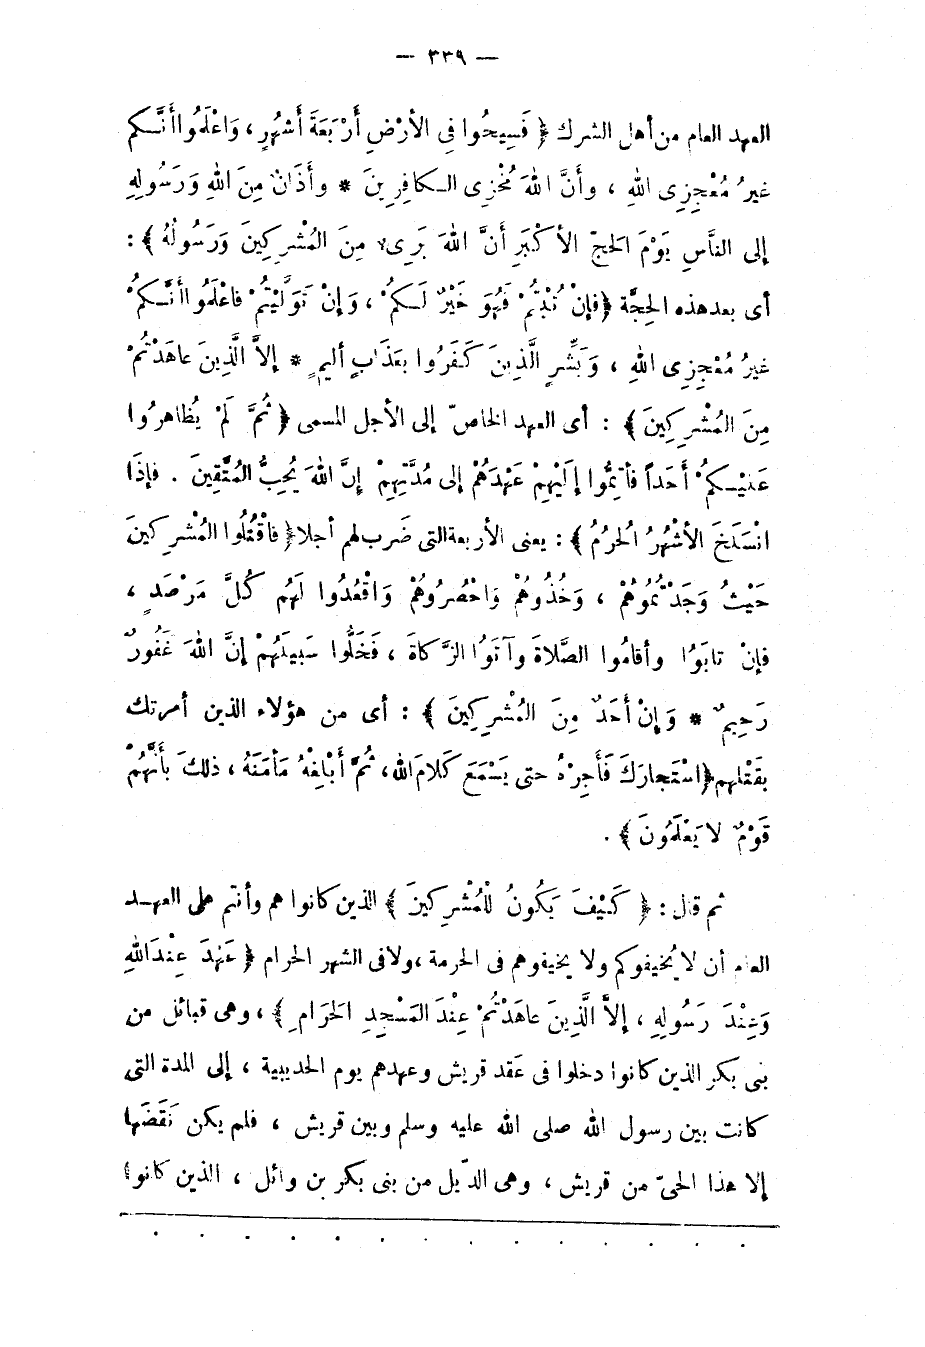 — ٣٣٩ —
العهد العام من أهل الشرك ﴿ فَسِيحُوا فِى الأرْضِ أَرْبَعَةَ أَشْهُرٍ ، وَاعْلَمُوا أَنَّكم
غيرُ مُعْجِزِى اللهِ ، وأَنَّ اللهَ مُخْزِى الكافِرِينَ * وأَذَانٌ مِنَ اللهِ وَرَسُولِهِ
إلى النَّاسِ يَوْمَ الحَجّ الأكْبَرِ أَنَّ اللهَ بَرِىءٌ مِنَ المُشْرِكِينَ وَرَسُولُهُ ﴾ :
أى بعد هذه الحِجَّة ﴿ فإنْ تُبْتُمْ فَهُوَ خَيْرٌ لَكمُْ ، وَإنْ تَوَلَّيْتُمْ فاعْلَمُوا أنَّكمُْ
غيرُ مُعْجِزِى اللهِ ، وَبَشِّرِ الَّذِينَ كَفَرُوا بعَذَابٍ أليمٍ * إلاَّ الَّذِينَ عاهَدْتُمْ
مِنَ المُشْرِكِينَ ﴾ : أى العهد الخاصّ إلى الأجل المسمى ﴿ ثُمَّ لَمْ يُظاهرُوا
عَلَيْكمُْ أَحَداً فأتِمُّوا إلَيْهِمْ عَهْدَهُمْ إلى مُدَّتِهِمْ إنَّ اللهَ يُحِبُّ المُتَّقِينَ . فإذَا
انْسَلَخَ الأشْهُرُ الحُرُمُ ﴾ : يعنى الأربعة التى ضَرب لهم أجلا ﴿ فاقْتُلُوا المُشْرِكينَ
حَيْثُ وَجَدْتُمُوهُمْ ، وَخُذُوهُمْ وَاحْصُرُوهُمْ وَاقْعُدُوا لَهُم كُلَّ مَرْصَدٍ ،
فإنْ تابَوُا وأقامُوا الصَّلاةَ وآتَوُا الزَّكاةَ ، فَخَلُّوا سَبيلَهُمْ إنَّ اللهَ غَفُورٌ
رَحِيمٌ * وَإنْ أَحَدٌ مِنَ المُشْرِكِينَ ﴾ : أى من هؤلاء الذين أمرتك
بقَتْلهم ﴿ اسْتَجارَكَ فَأَجِرْهُ حتى يَسْمَعَ كَلامَ الله ، ثُمَّ أَبْلِغْهُ مَأمَنَهُ ، ذلكَ بأنَّهُمْ
قَوْمٌ لا يَعْلَمُونَ ﴾ .
ثم قال : ﴿ كَيْفَ يَكُونُ للْمُشْرِكينَ ﴾ الذين كانوا هم وأنتم على العهد
العام أن لا يُخيفوكم ولا يخيفوهم فى الحرمة ، ولا فى الشهر الحرام ﴿ عَهْدٌ عِنْدَ اللهِ
وَعِنْدَ رَسُولِهِ ، إلاَّ الَّذِينَ عاهَدْتُمْ عِنْدَ المَسْجِدِ الحَرَامِ ﴾ ، وهى قبائل من
بنى بكر الذين كانوا دخلوا فى عَقد قريش وعهدهم يوم الحديبية ، إلى المدة التى
كانت بين رسول الله صلى الله عليه وسلم وبين قريش ، فلم يكن نَقَضَها
إلا هذا الحىّ من قريش ، وهى الدّيل من بنى بكر بن وائل ، الذين كانوا